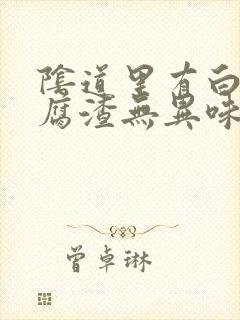 陰道里有白
腐渣無異味
曾卓琳